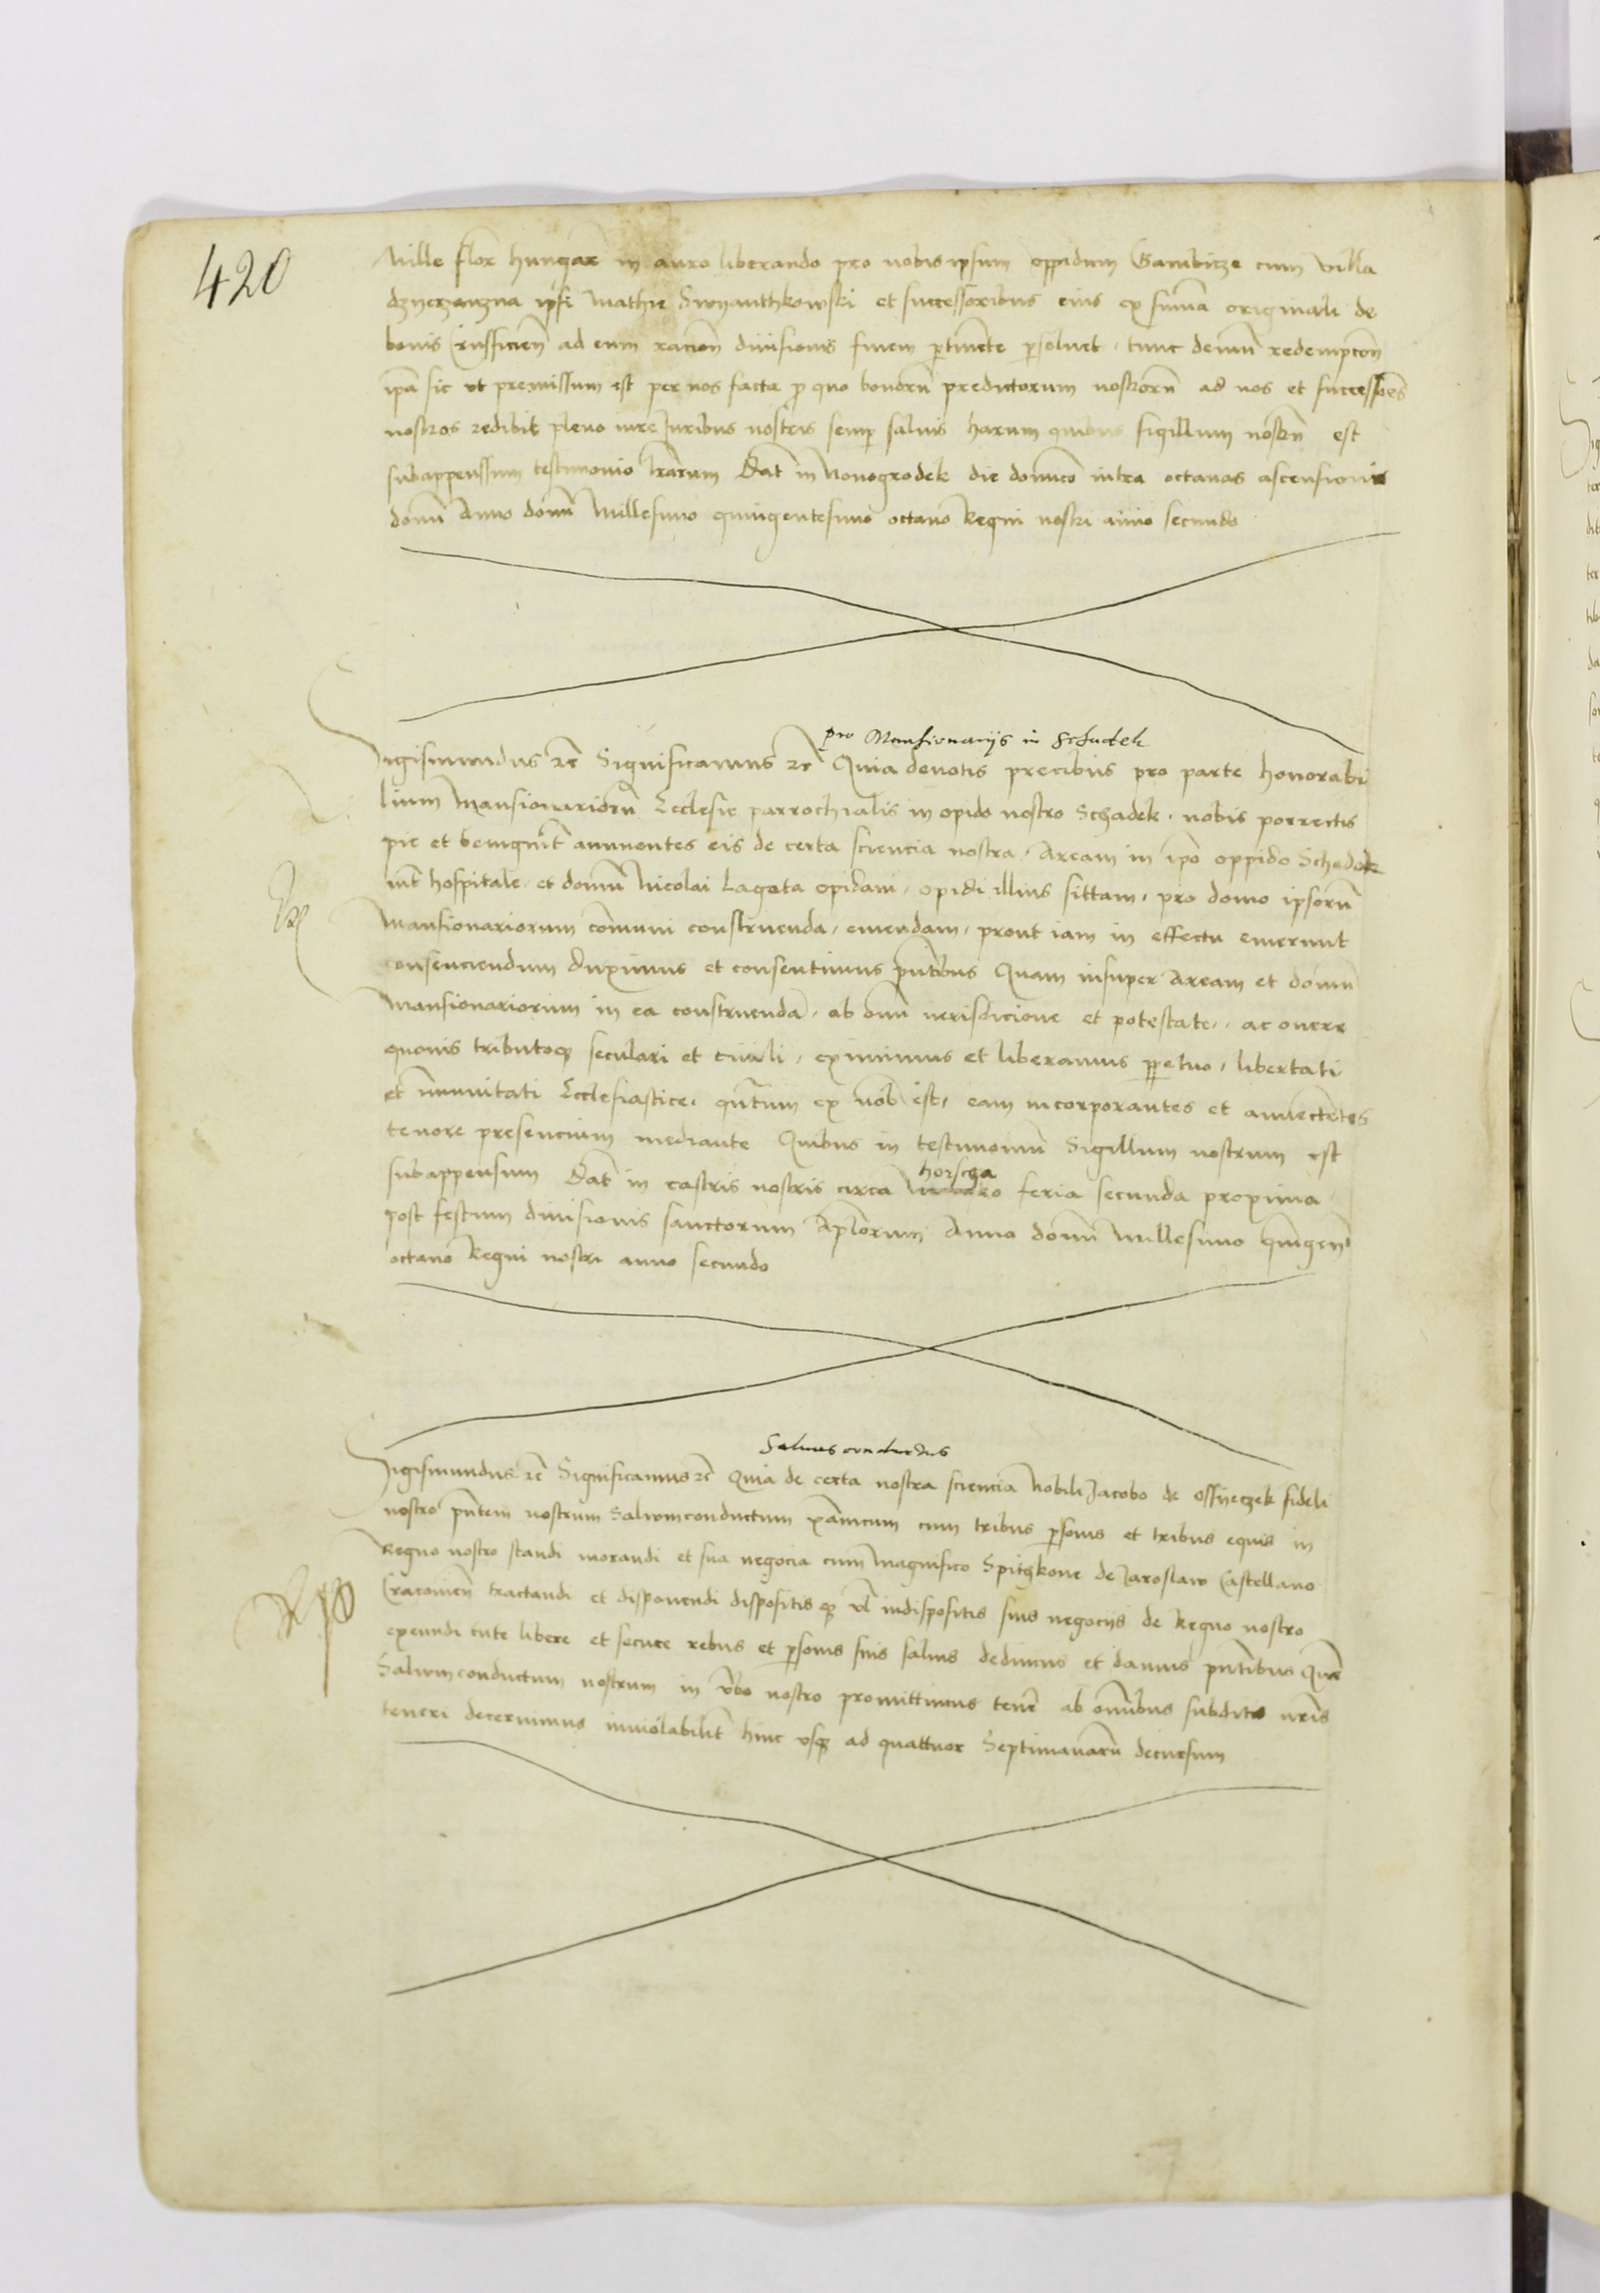 420
Mille flor hungar in auro liberando pro nobis ipsum oppidum Gambicze cum villa
dzyerzanzna ipsi Mathie Swyanthkowski et successoribus eius ex summa originali de
bonis Crusficien ad eum racion divisionis finem pertinente persolvet, tunc demum redempcon
ipa sic ut premissum est per nos facta pro quo bonorum predictorum nostrorum ad nos et successores
nostros redibit pleno iure Juribus nostris semper salvis harum quibus sigillum nostrum est
subappenssum testimonio lrarum Dat in Novogrodek die dominco infra octavas ascensionis
domini Anno domini Millesimo quingentesimo octavo Regni nostri anno secundo
pro Mansionarijs in Schadek
Sigismundus etc Significamus etc Quia devotis precibus pro parte honorabi
lium Mansionariorum Ecclesie parrochialis in opido nostro Schadek, nobis porrectis
pie et benignit annuentes eis de certa sciencia nostra, Aream in ipo oppido Schadek
int hospitale, et domum Nicolai Lagata opidani, opidi illius sittam, pro domo ipsorum
Mansionariorum comuni construenda, emendam, prout iam in effectu emerunt
consenciendum duximus et consentimus pntibus Quam insuper Aream et domum
Mansionariorum in ea construendam, ab omni iurisdicione et potestate, ac onere
quovis tributoque seculari et civili, eximimus et liberamus perpetuo, libertati
et immunitati Ecclesiastice, quantum ex nob est, eam incorporantes et annectentes
tenore presencium mediante Quibus in testimonium Sigillum nostrum est
horscha
subappensum Dat in castris nostris circa feria secunda proxima
post festum divisionis sanctorum Aplorum Anno domini Millesimo quingen
octavo Regni nostri anno secundo
Salvus conductus
Sigismundus etc Significamus etc Quia de certa nostra sciencia Nobili Jacobo de Ossyeczek fideli
nostro pntem nostrum Salvumconductum cum tribus personis et tribus equis in
Regno nostro standi morandi et sua negocia cum Magnifico Spitgkone de Jaroslaw Castellano
Cracovien tractandi et disponendi dispositisque vel indispositis suis negocijs de Regno nostro
exeundi tute libere et secure rebus et personis suis salvis dedimus et damus pntibus Quem
Salvumconductum nostrum in verbo nostro promittimus tenere ab omnibus subditis nris
teneri decernimus inviolabilit hinc usque ad quattuor Septimanarum decursum